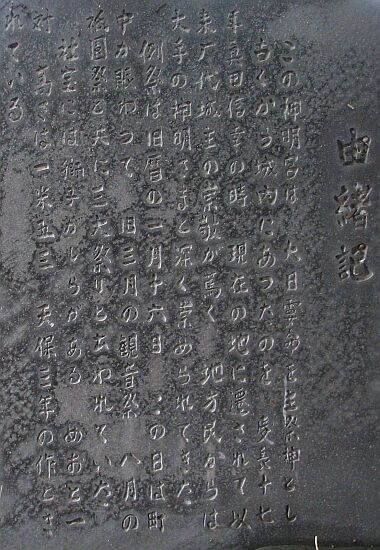 由緒記
この神明宮は 大日孁命を主祭神とし
古くから城内にあったのを 慶長十七
年真田信幸の時 現在の地に遷されて以
来 代々城主の崇敬が篤く 地方民からは
大手の神明さまと深く崇められてきた
例祭は旧暦の一月十六日 この日は町
中が賑わって 旧三月の観音祭 八月の
祇園祭と共に三大祭りと云われていた
社宝には獅子がしらがある めおと一
対 高さは一米五三 天保三年の作とさ
れている